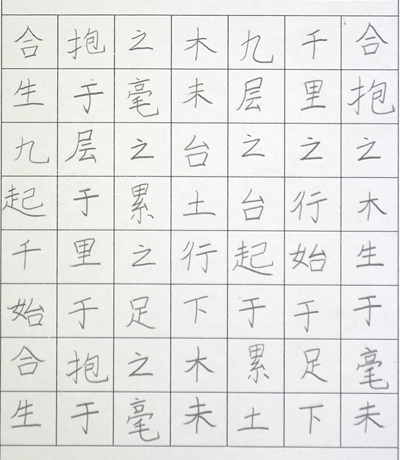 合抱之木九千合
生于毫末层里抱
九层之台之之之
起于累土台行木
千里之行起始生
始于足下于于于
合抱之木累足毫
生于毫末土下末